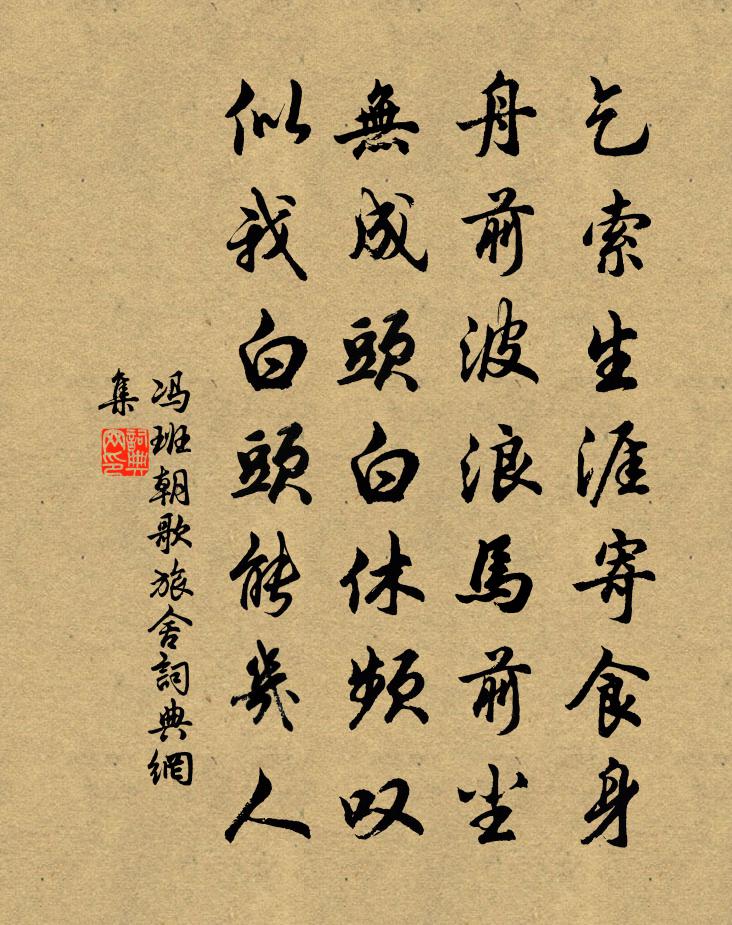 乞索生涯寄食身
舟前波浪馬前尘
無成頭白休頻叹
似我白頭能幾人
冯班朝歌旅舍詞典網
集
詞典網印